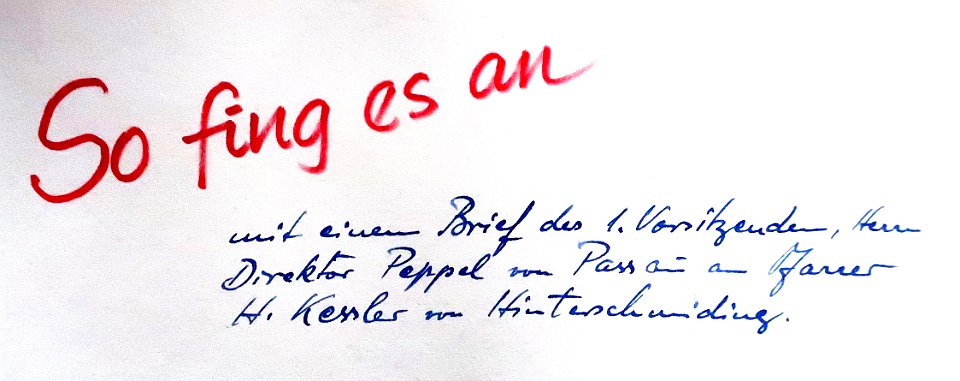 So fing es an
mit einem Brief des 1. Vorsitzenden, Herrn
Direktor Peppel von Passau an Pfarrer
H. Kessler von Hinterschmiding.